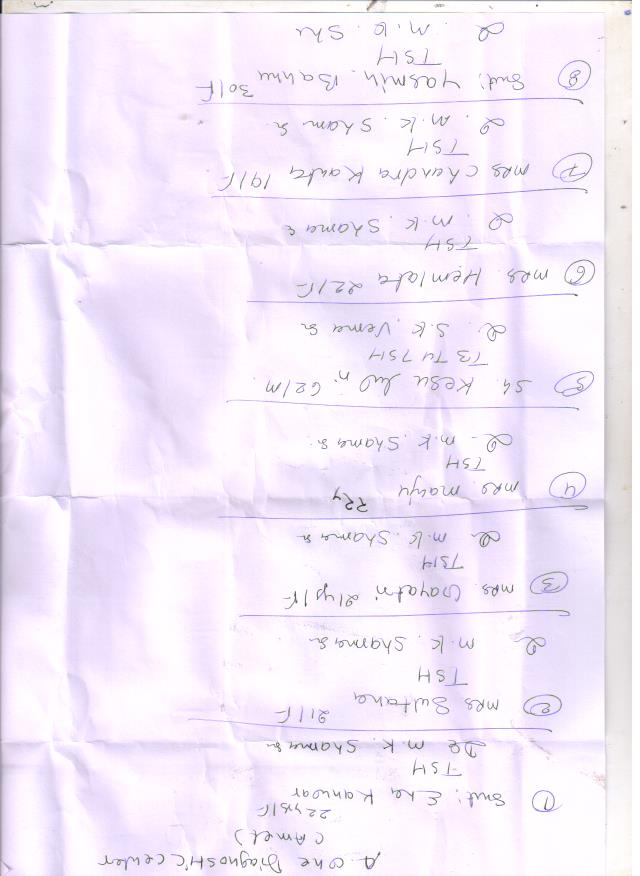 A. One Diagnostic Center
(Amet)
① Smt: Ena Kanwar 22ys/F
TSH
Dr M.K. Shama Sr
② Mrs Sultana 21/F
TSH
M.K. Shama Sr
③ Mrs. Gayatri 21y/F
TSH
M.K. Shama Sr
④ Mrs. Manju 22y
TSH
M.K. Shama Sr
⑤ Sh. Kesu 62/M
T3 T4 TSH
S.K. Verma Sr
⑥ Mrs. Hemlata 22/F
TSH
M.K. Shama Sr
⑦ Mrs. Chandra Kanta 19/F
TSH
M.K. Sham Sr
⑧ Smt: Yasmin. Bannu 30/F
TSH
M.K. Sh